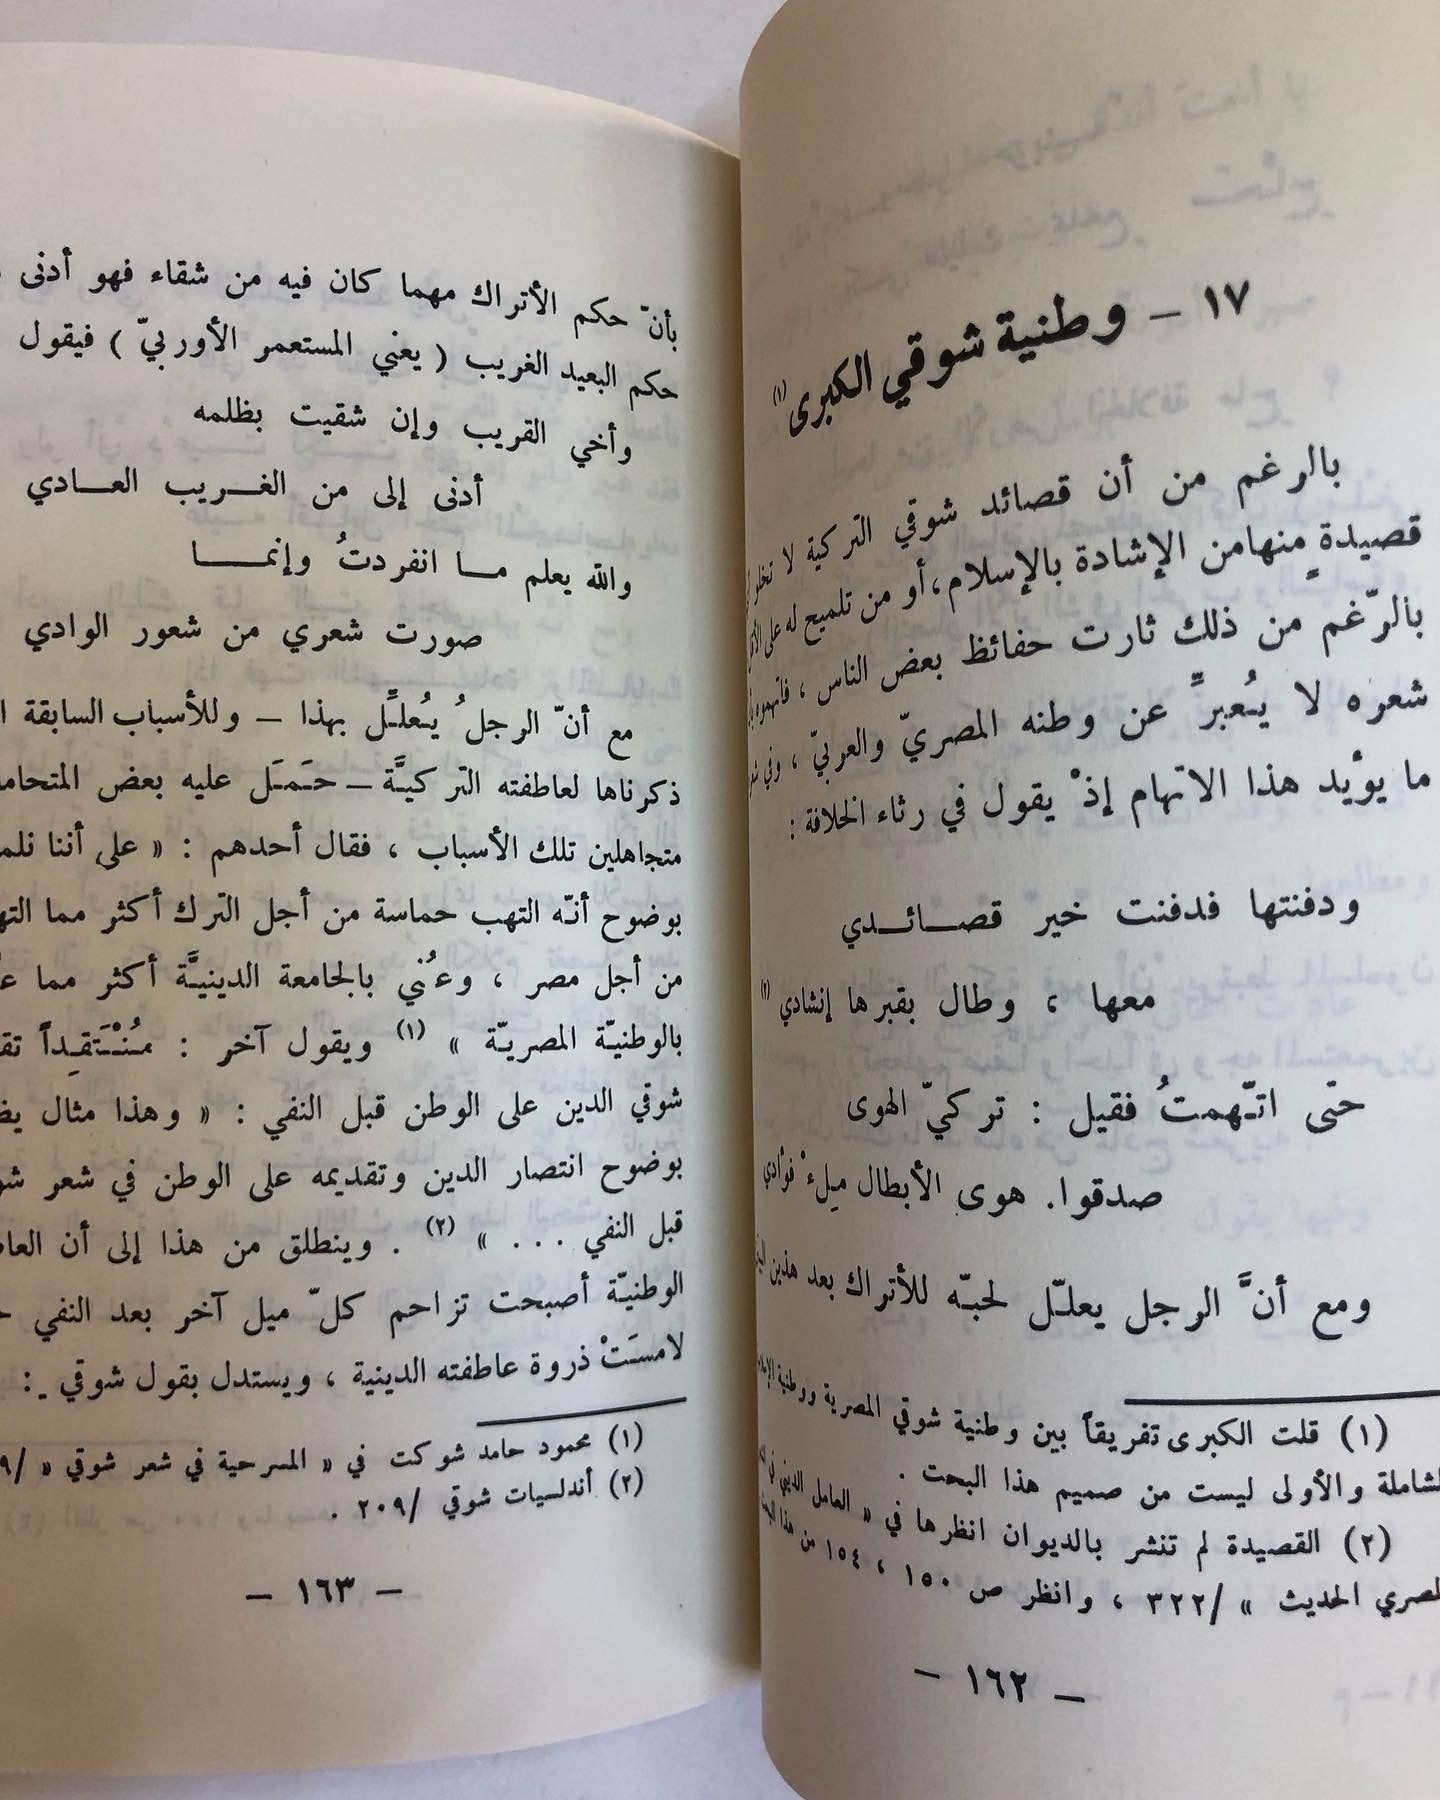 ١٧ - وطنية شوقي الكبرى (١)
بالرغم من أن قصائد شوقي التركية لا تخلو
قصيدةٍ منهامن الإشادة بالإسلام، أو من تلميح له على
بالرّغم من ذلك ثارت حفائظ بعض الناس ، فاتهموه
شعره لا يُعبرِّ عن وطنه المصريّ والعربيّ ، وفي
ما يؤيد هذا الاتهام إذْ يقول في رثاء الخلافة :
ودفنتها فدفنت خير قصـائـدي
معها ، وطال بقبرها إنشادي (٢)
حتى اتـّهمتُ فقيل : تركيّ الهوى
صدقوا. هوى الأبطال ملءْ فؤادي
ومع أنَّ الرجل يعلـّل لحبـّه للأتراك بعد هذين
(١) قلت الكبرى تفريقاً بين وطنية شوقي المصرية ووطنية
الشاملة والأولى ليست من صميم هذا البحث .
(٢) القصيدة لم تنشر بالديوان انظرها في « العامل الديني في
المصري الحديث » /٣٢٢ ، وانظر ص ١٥٠ ، ١٥٤ من هذا
- ١٦٢ -
بأنّ حكم الأتراك مهما كان فيه من شقاء فهو أدنى
حكم البعيد الغريب ( يعني المستعمر الأوربيّ ) فيقول
وأخي القريب وإن شقيت بظلمه
أدنى إلى من الغـريب العـادي
والله يعلم مـا انفردتُ وإنمـا
صورت شعري من شعور الوادي
مع أنّ الرجلُ يُعلـِّل بهذا - وللأسباب السابقة
ذكرناها لعاطفته التركيـَّة - حـَمـَل عليه بعض
متجاهلين تلك الأسباب ، فقال أحدهم : « على أننا
بوضوح أنـّه التهب حماسة من أجل الترك أكثر مما
من أجل مصر ، وعُني بالجامعة الدينيـَّة أكثر مما
بالوطنيـّة المصريـّة » (١) ويقول آخر : مُنْتَقِداً
شوقي الدين على الوطن قبل النفي : « وهذا مثال
بوضوح انتصار الدين وتقديمه على الوطن في شعر
قبل النفي . . . » (٢) . وينطلق من هذا إلى أن
الوطنيـّة أصبحت تزاحم كلّ ميل آخر بعد النفي
لامسَتْ ذروة عاطفته الدينية ، ويستدل بقول شوقي :
(١) محمود حامد شوكت في « المسرحية في شعر شوقي »
(٢) أندلسيات شوقي /٢٠٩ .
- ١٦٣ -